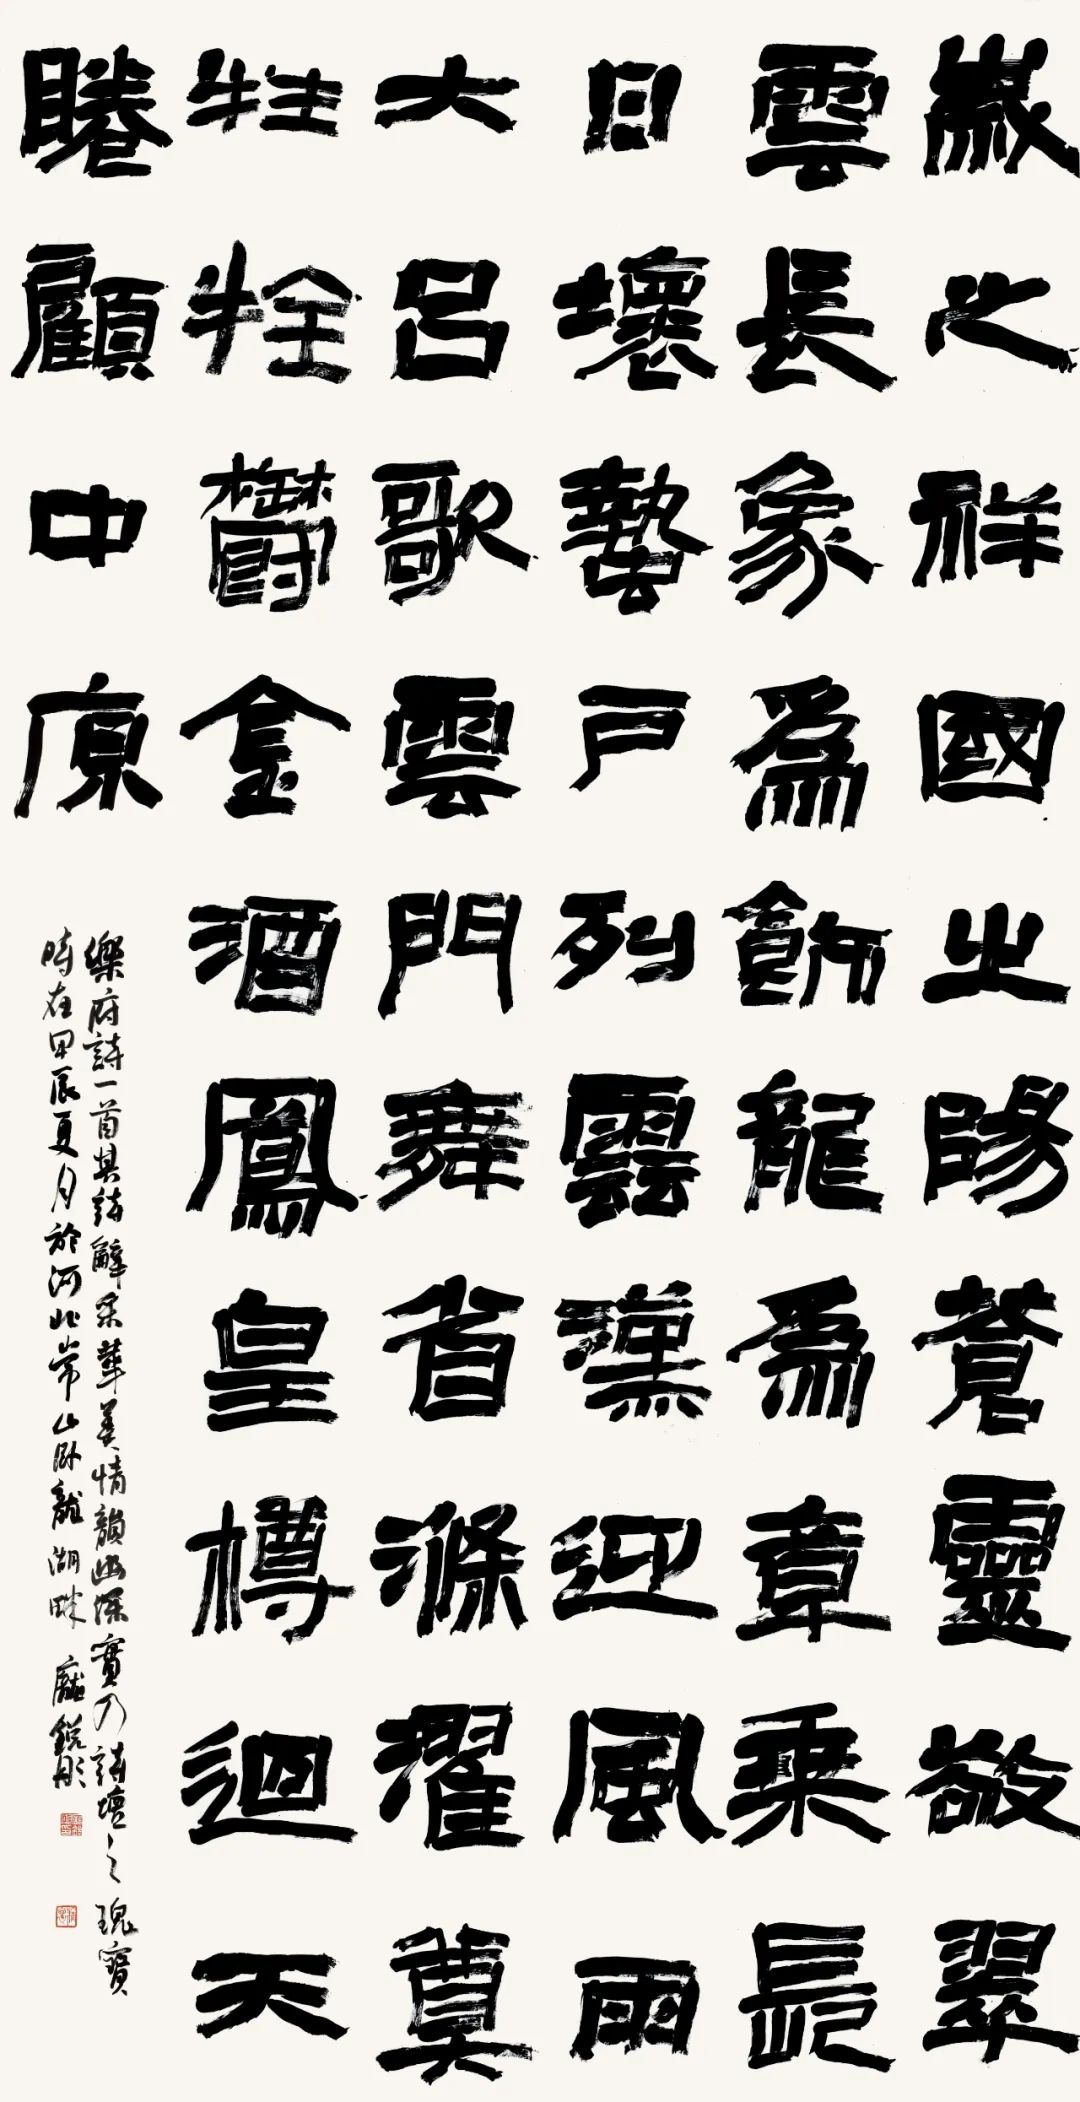 歲之祥國之陽蒼靈敬翠
雲長象爲飾龍爲章乘長
日壞蟄戶列雲漢迎風雨
大呂歌雲門舞省滌濯奠
牲牷鬱金酒鳳皇樽迴天
睠顧中原
樂府詩一首其詩辭采華美情韻幽深實乃詩壇之瑰寶
時在甲辰夏月於河北常山臥龍湖畔 龐銳彤